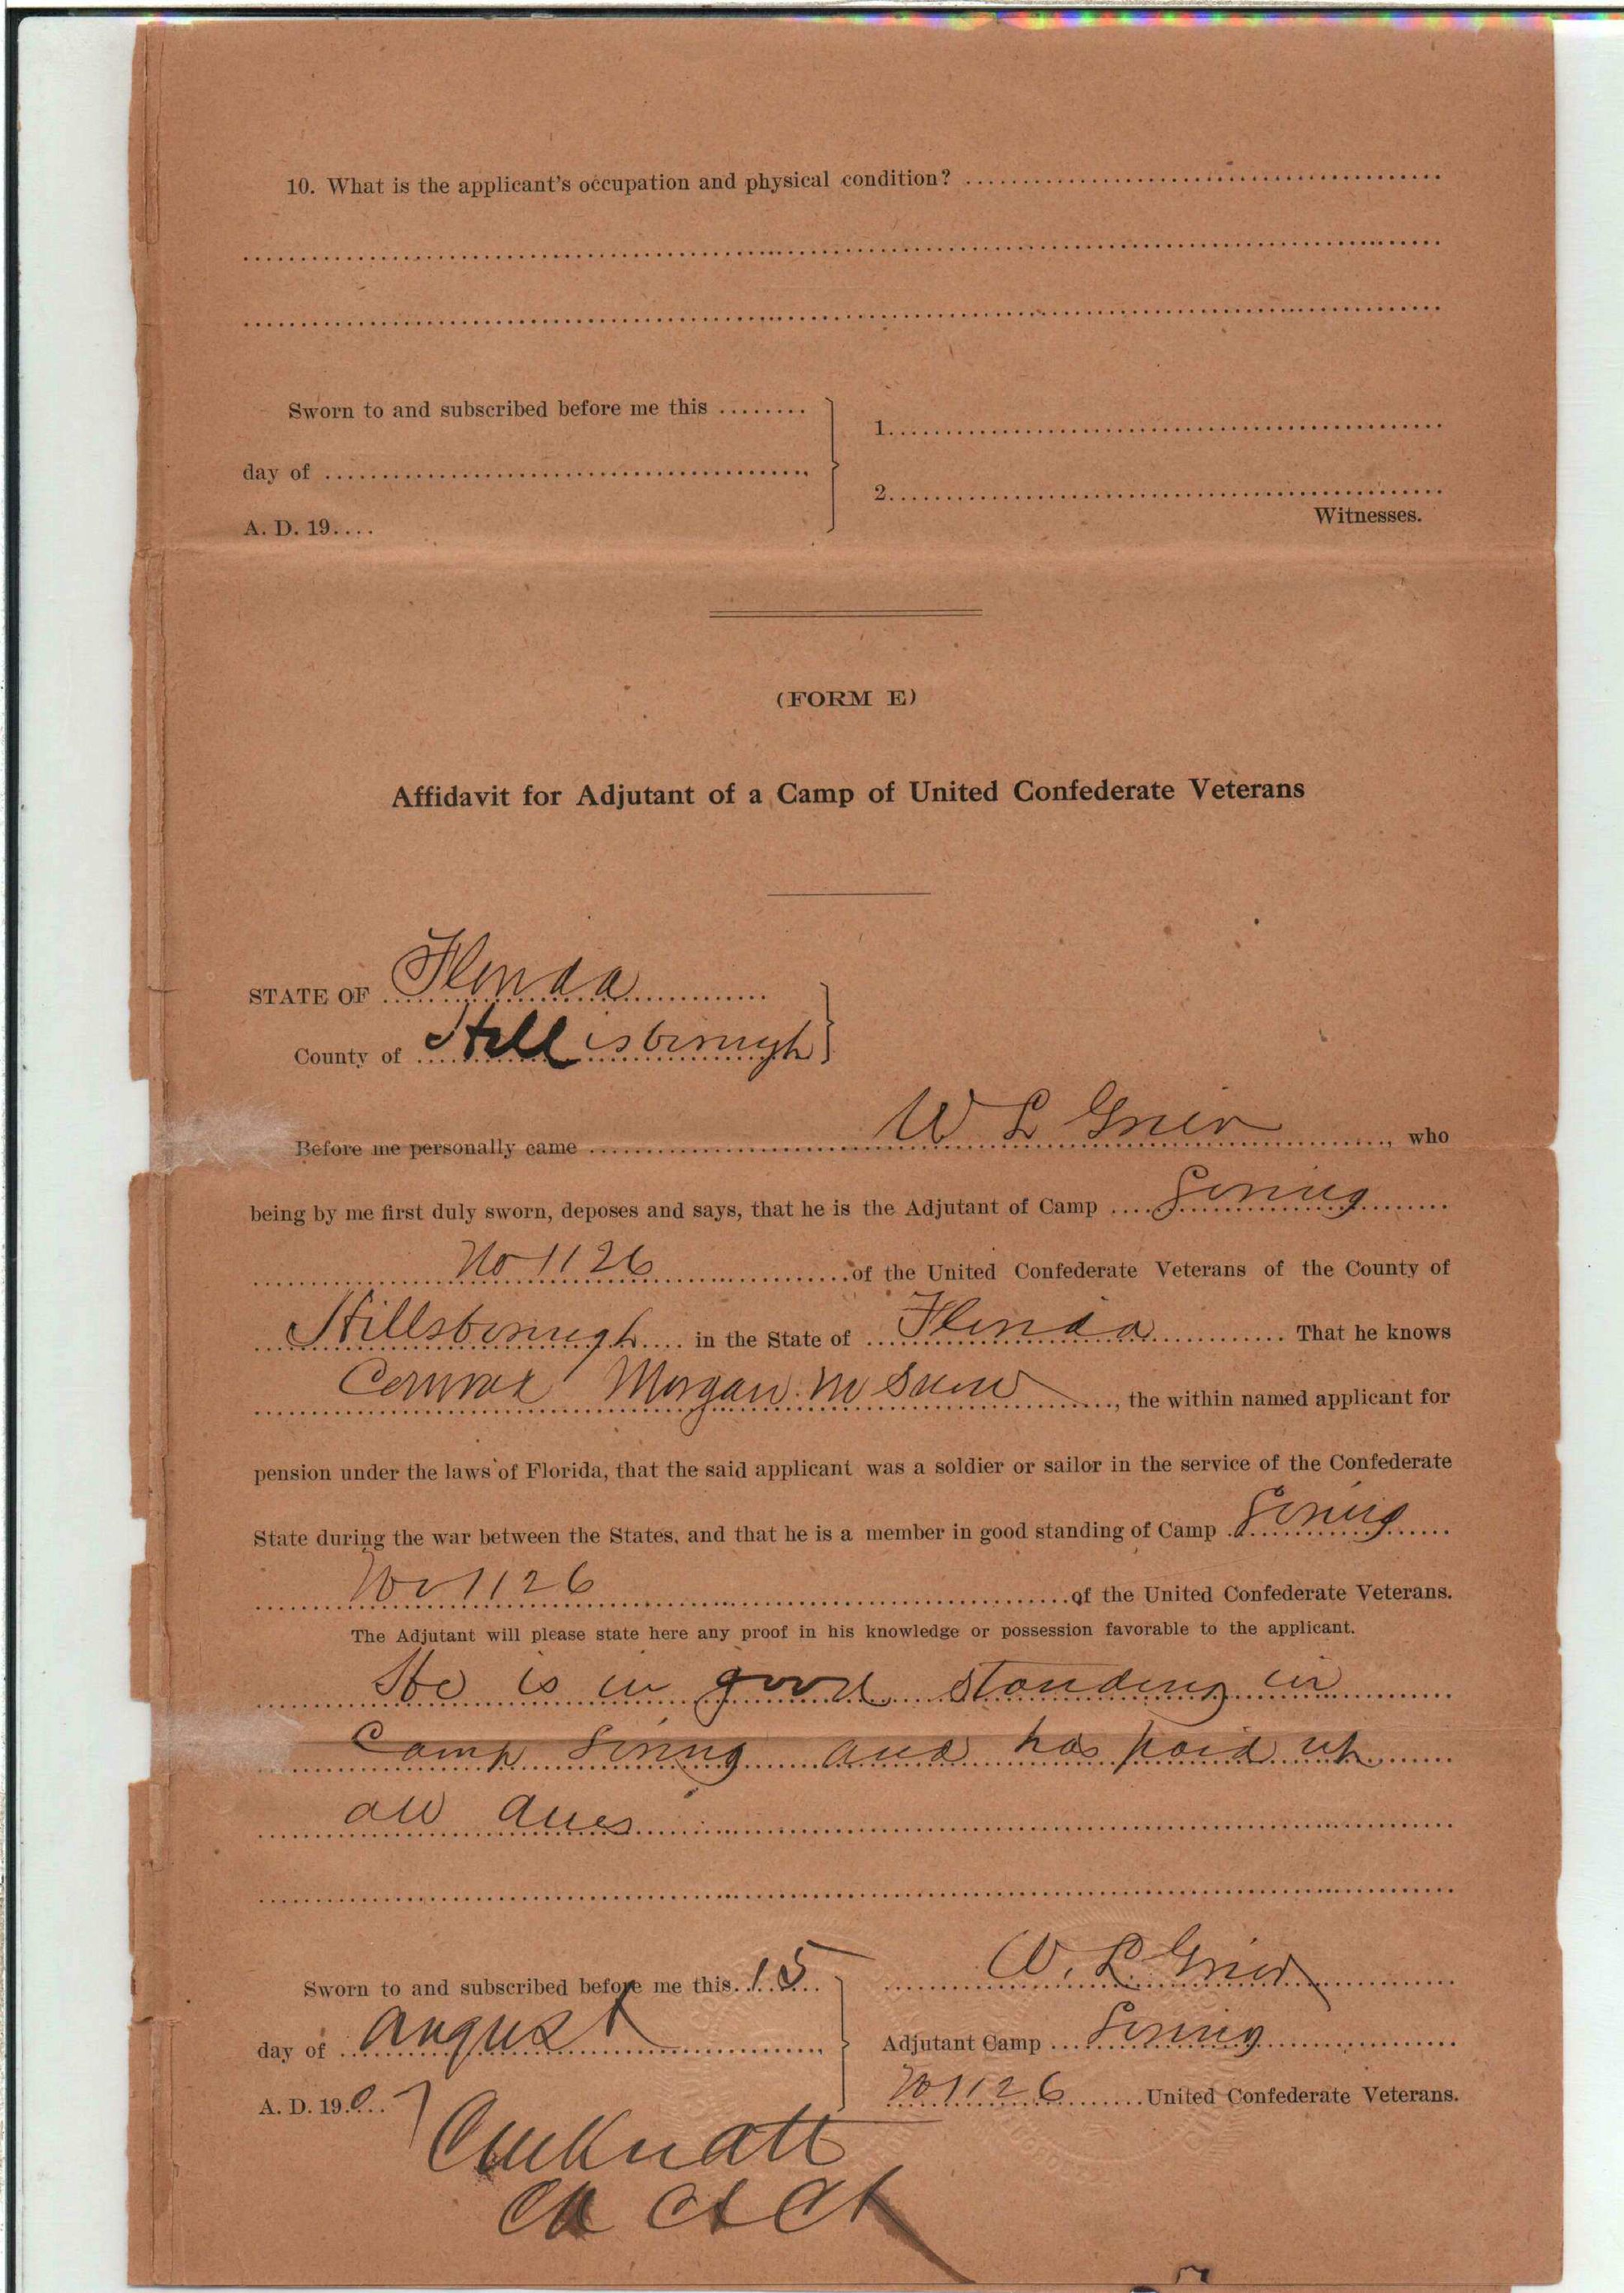 10. What is the applicant's occupation and physical condition? ........
Sworn to and subscribed before me this ........
day of ........
A. D. 19....
1........
2........
Witnesses.
(FORM E)
Affidavit for Adjutant of a Camp of United Confederate Veterans
STATE OF Florida
County of Hillsborough
Before me personally came W L Grier, who
being by me first duly sworn, deposes and says, that he is the Adjutant of Camp Loring
No 1126 of the United Confederate Veterans of the County of
Hillsborough in the State of Florida That he knows
Morgan, the within named applicant for
pension under the laws of Florida, that the said applicant was a soldier or sailor in the service of the Confederate
State during the war between the States, and that he is a member in good standing of Camp Loring
No 1126 of the United Confederate Veterans.
The Adjutant will please state here any proof in his knowledge or possession favorable to the applicant.
He is in good standing in
Camp Loring and has paid up
all dues
Sworn to and subscribed before me this 15
day of August
A. D. 1907
W. L. Grier
Adjutant Camp Loring
No 1126 United Confederate Veterans.